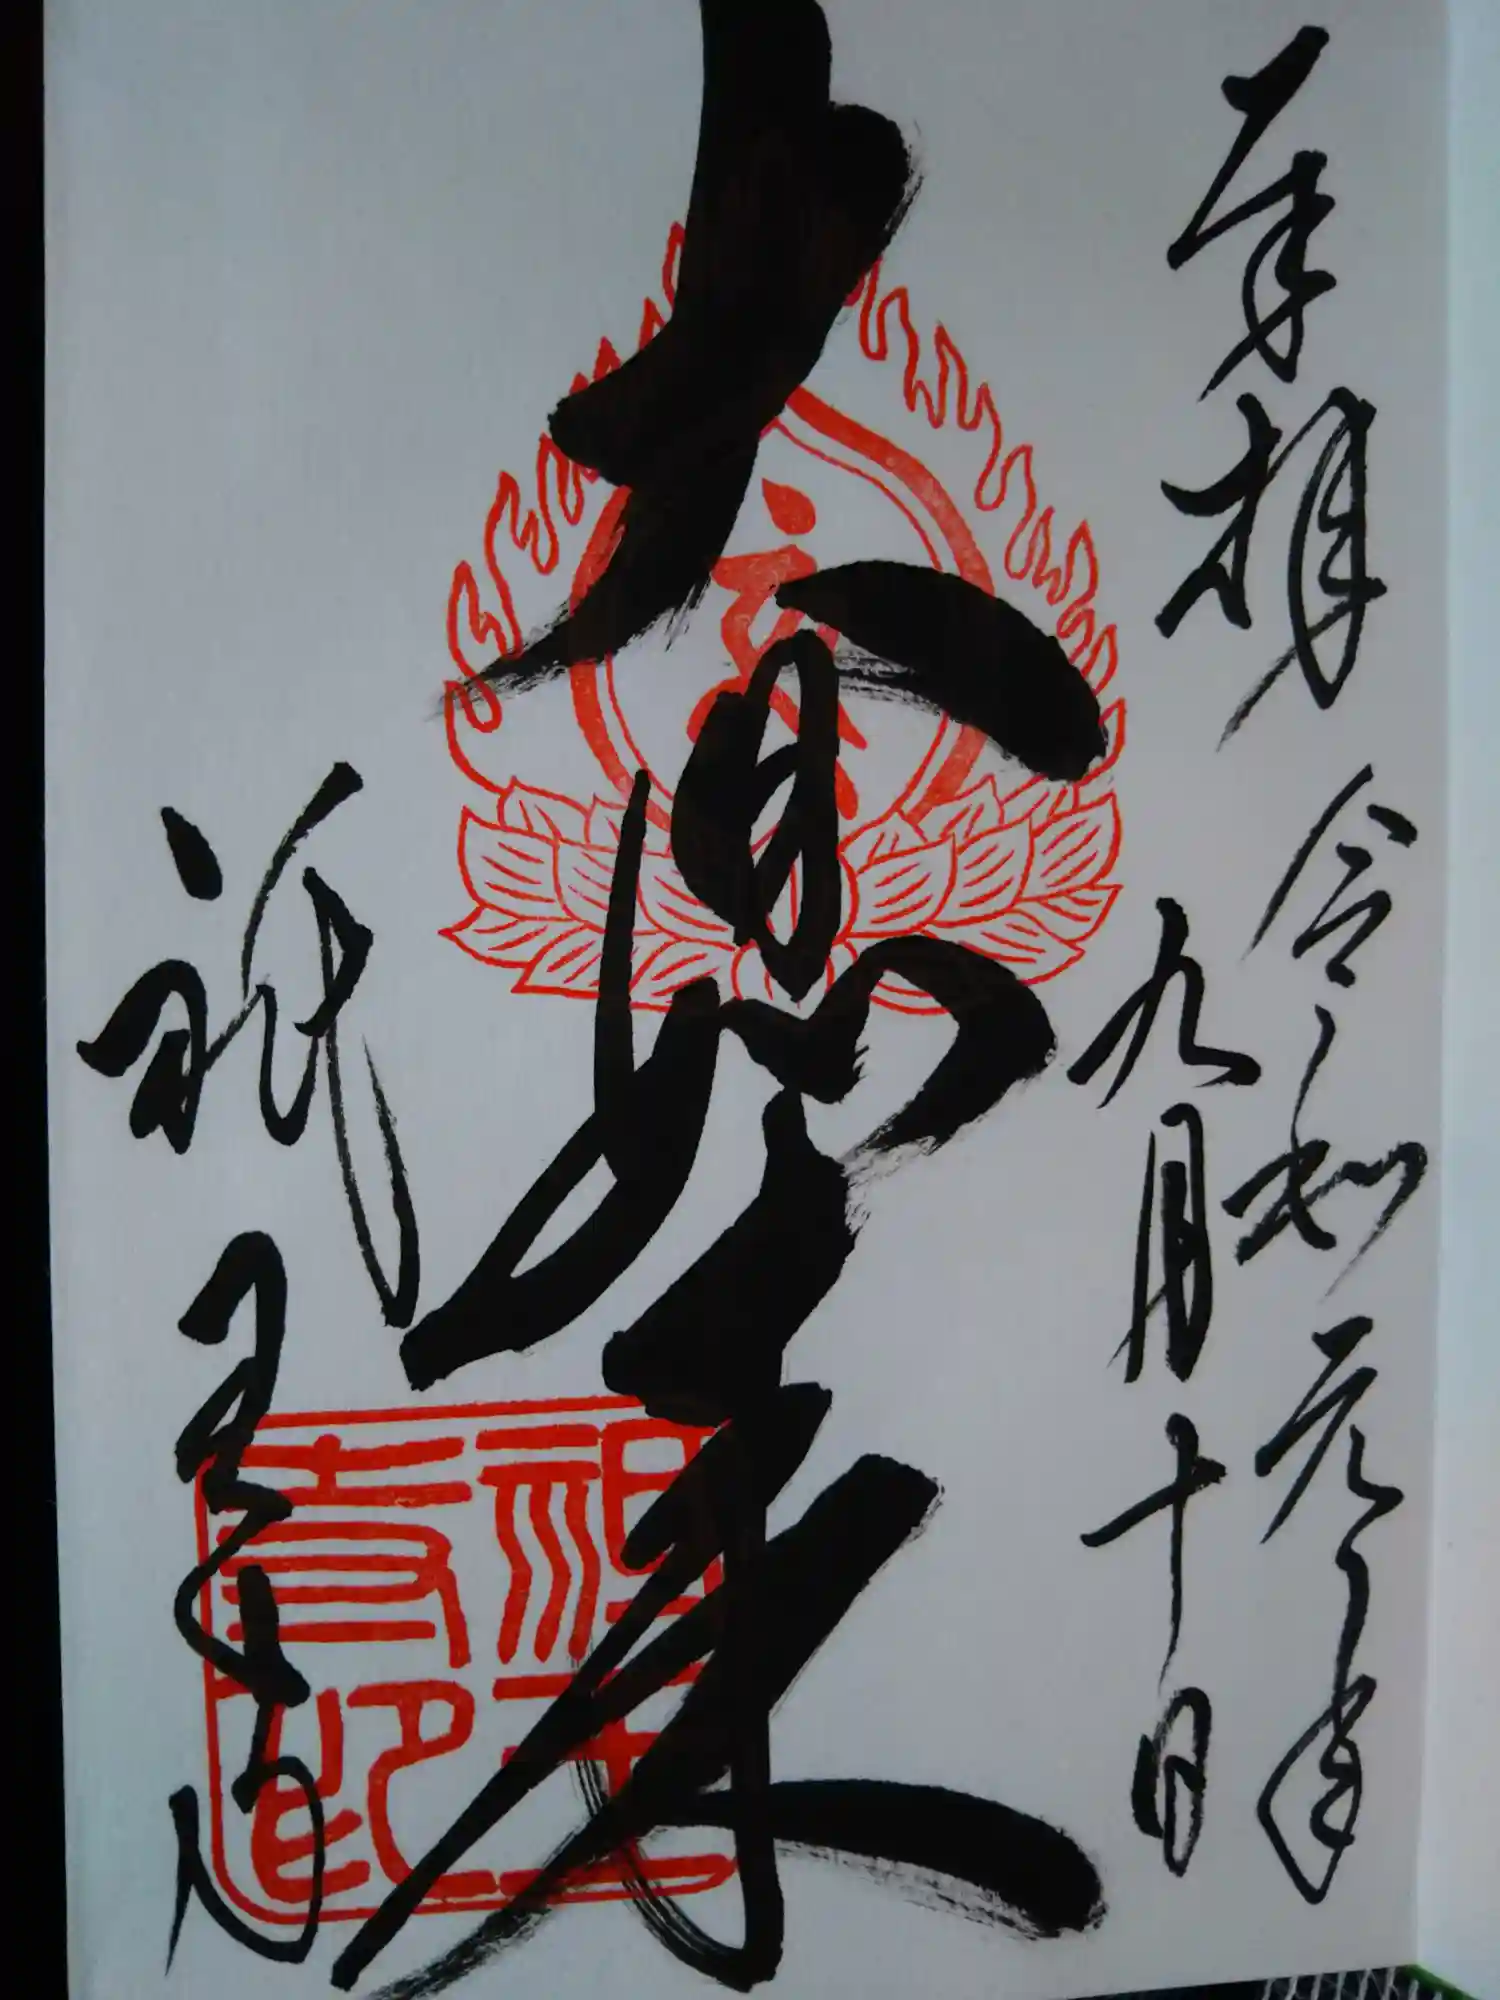 奉拝 令和元年
九月十日
大日如来
祇王寺